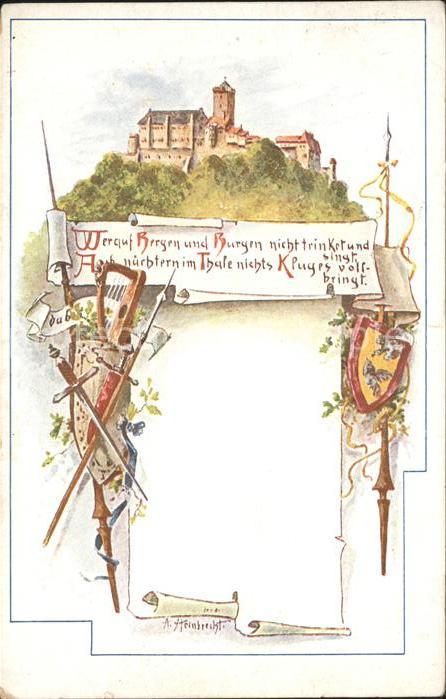 Wer auf Bergen und Burgen nicht trinket und singt,
Auch nüchtern im Thale nichts Kluges voll-
bringt.
A. Heinbrecht.